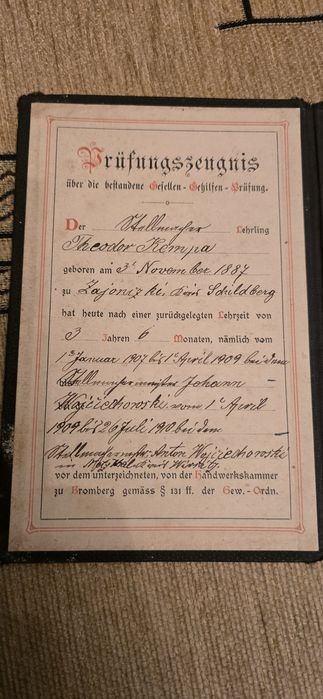 Prüfungszeugnis
über die bestandene Gesellen-Gehilfen-Prüfung.
Der Stellmacher Lehrling
Theodor Kempa
geboren am 3t November 1887
zu Zajonczki Kreis Schildberg
hat heute nach einer zurückgelegten Lehrzeit von
3 Jahren 6 Monaten, nämlich vom
1t Januar 1907 bis 1t April 1909 bei dem
Stellmachermeister Johann
Wojciechowski vom 1t April
1909 bis 26 Juli 190 bei dem
Stellmachermstr Anton Wojciechowski
in Kreis Wirsitz
vor dem unterzeichneten, von der Handwerkskammer
zu Bromberg gemäss § 131 ff. der Gew.-Ordn.